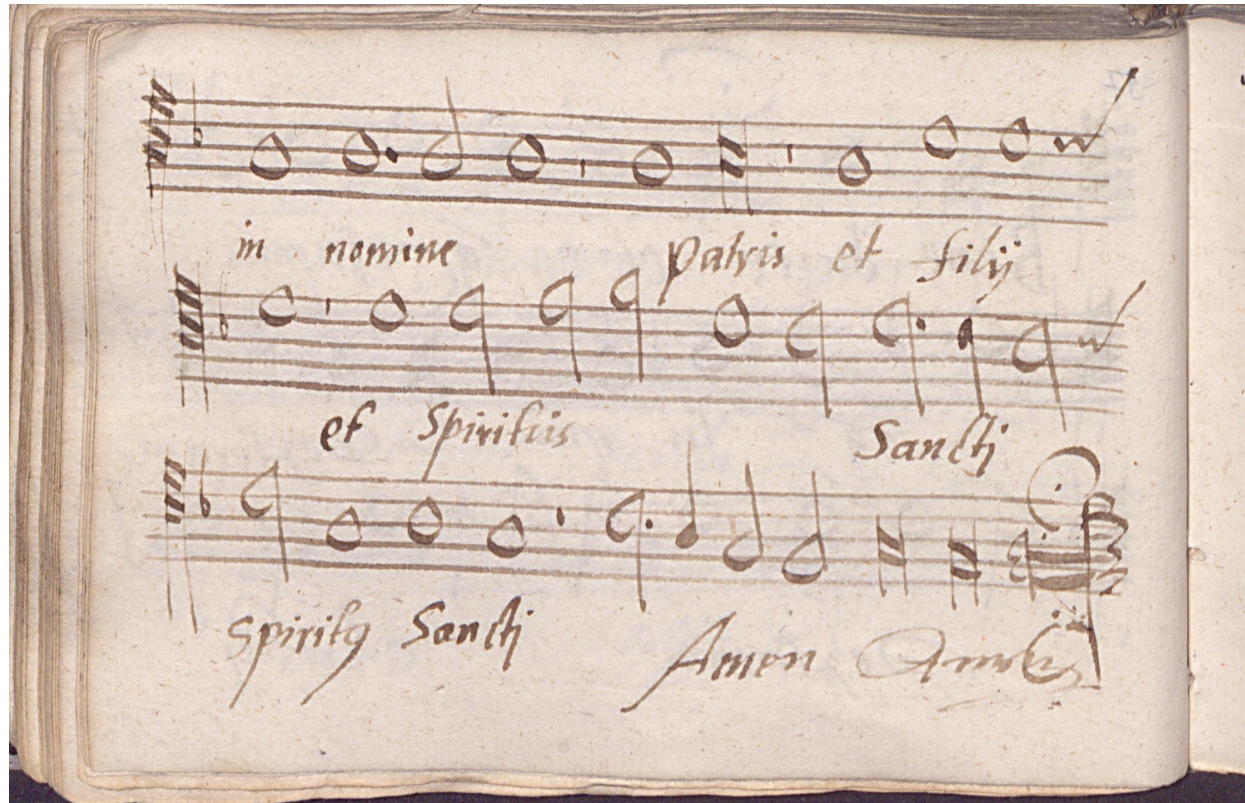 in nomine patris et filij
et Spiritus Sancti
Spiritus Sancti Amen